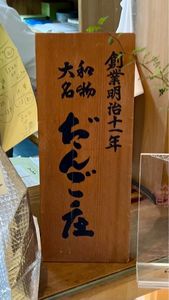 創業明治十一年
大和
名物
だんご庄